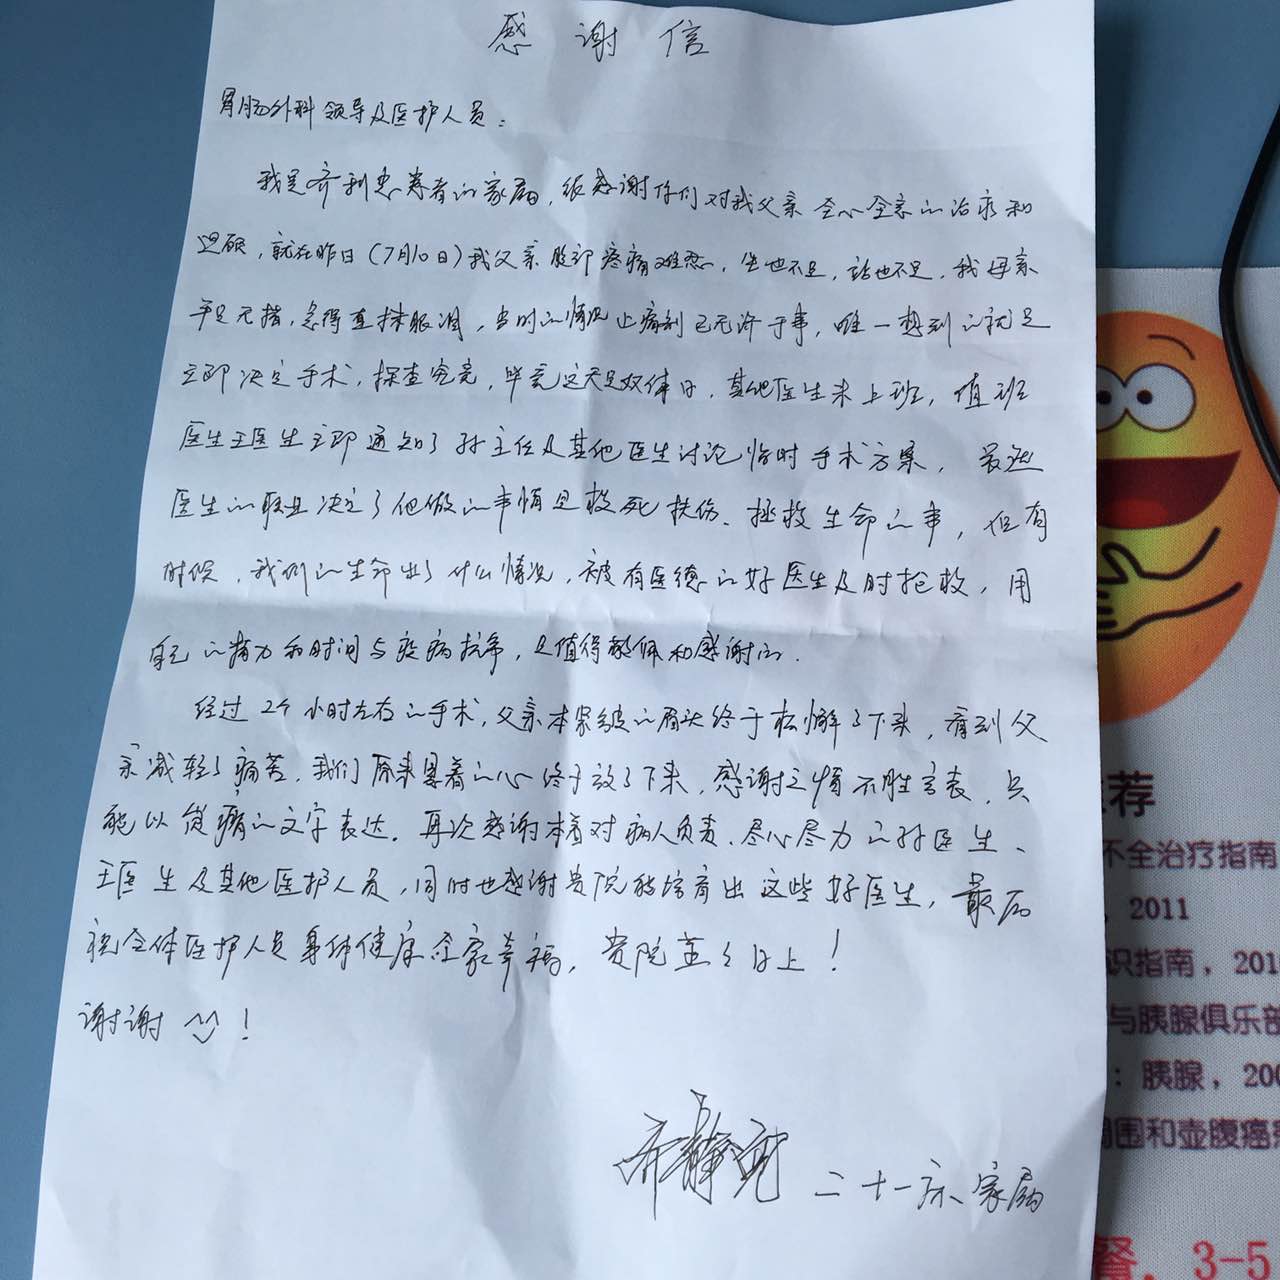 感谢信
胃肠外科领导及医护人员：
我是齐利忠患者的家属，很感谢你们对我父亲全心全意的治疗和
照顾，就在昨日（7月10日）我父亲腹部疼痛难忍，坐也不是，站也不是，我母亲
手足无措，急得直抹眼泪，当时的情况止痛剂已无济于事，唯一想到的就是
立即决定手术，探查究竟，毕竟这天是双休日，其他医生未上班，值班
医生王医生立即通知了孙主任及其他医生讨论临时手术方案，虽然
医生的职业决定了他做的事情是救死扶伤、拯救生命的事，但有
时候，我们的生命出了什么情况，被有医德的好医生及时抢救，用
自己的精力和时间与疾病抗争，是值得敬佩和感谢的．
经过2个小时左右的手术，父亲本紧皱的眉头终于松懈了下来，看到父
亲减轻了痛苦，我们原来悬着的心终于放了下来，感谢之情不胜言表，只
能以贫瘠的文字表达．再次感谢本着对病人负责、尽心尽力的孙医生、
王医生及其他医护人员，同时也感谢贵院能培育出这些好医生，最后
祝全体医护人员身体健康 全家幸福，贵院蒸蒸日上！
谢谢！
二十一床家属
荐
不全治疗指南
, 2011
识指南，201
与胰腺俱乐部
：胰腺，200
周围和壶腹癌
餐，3-5